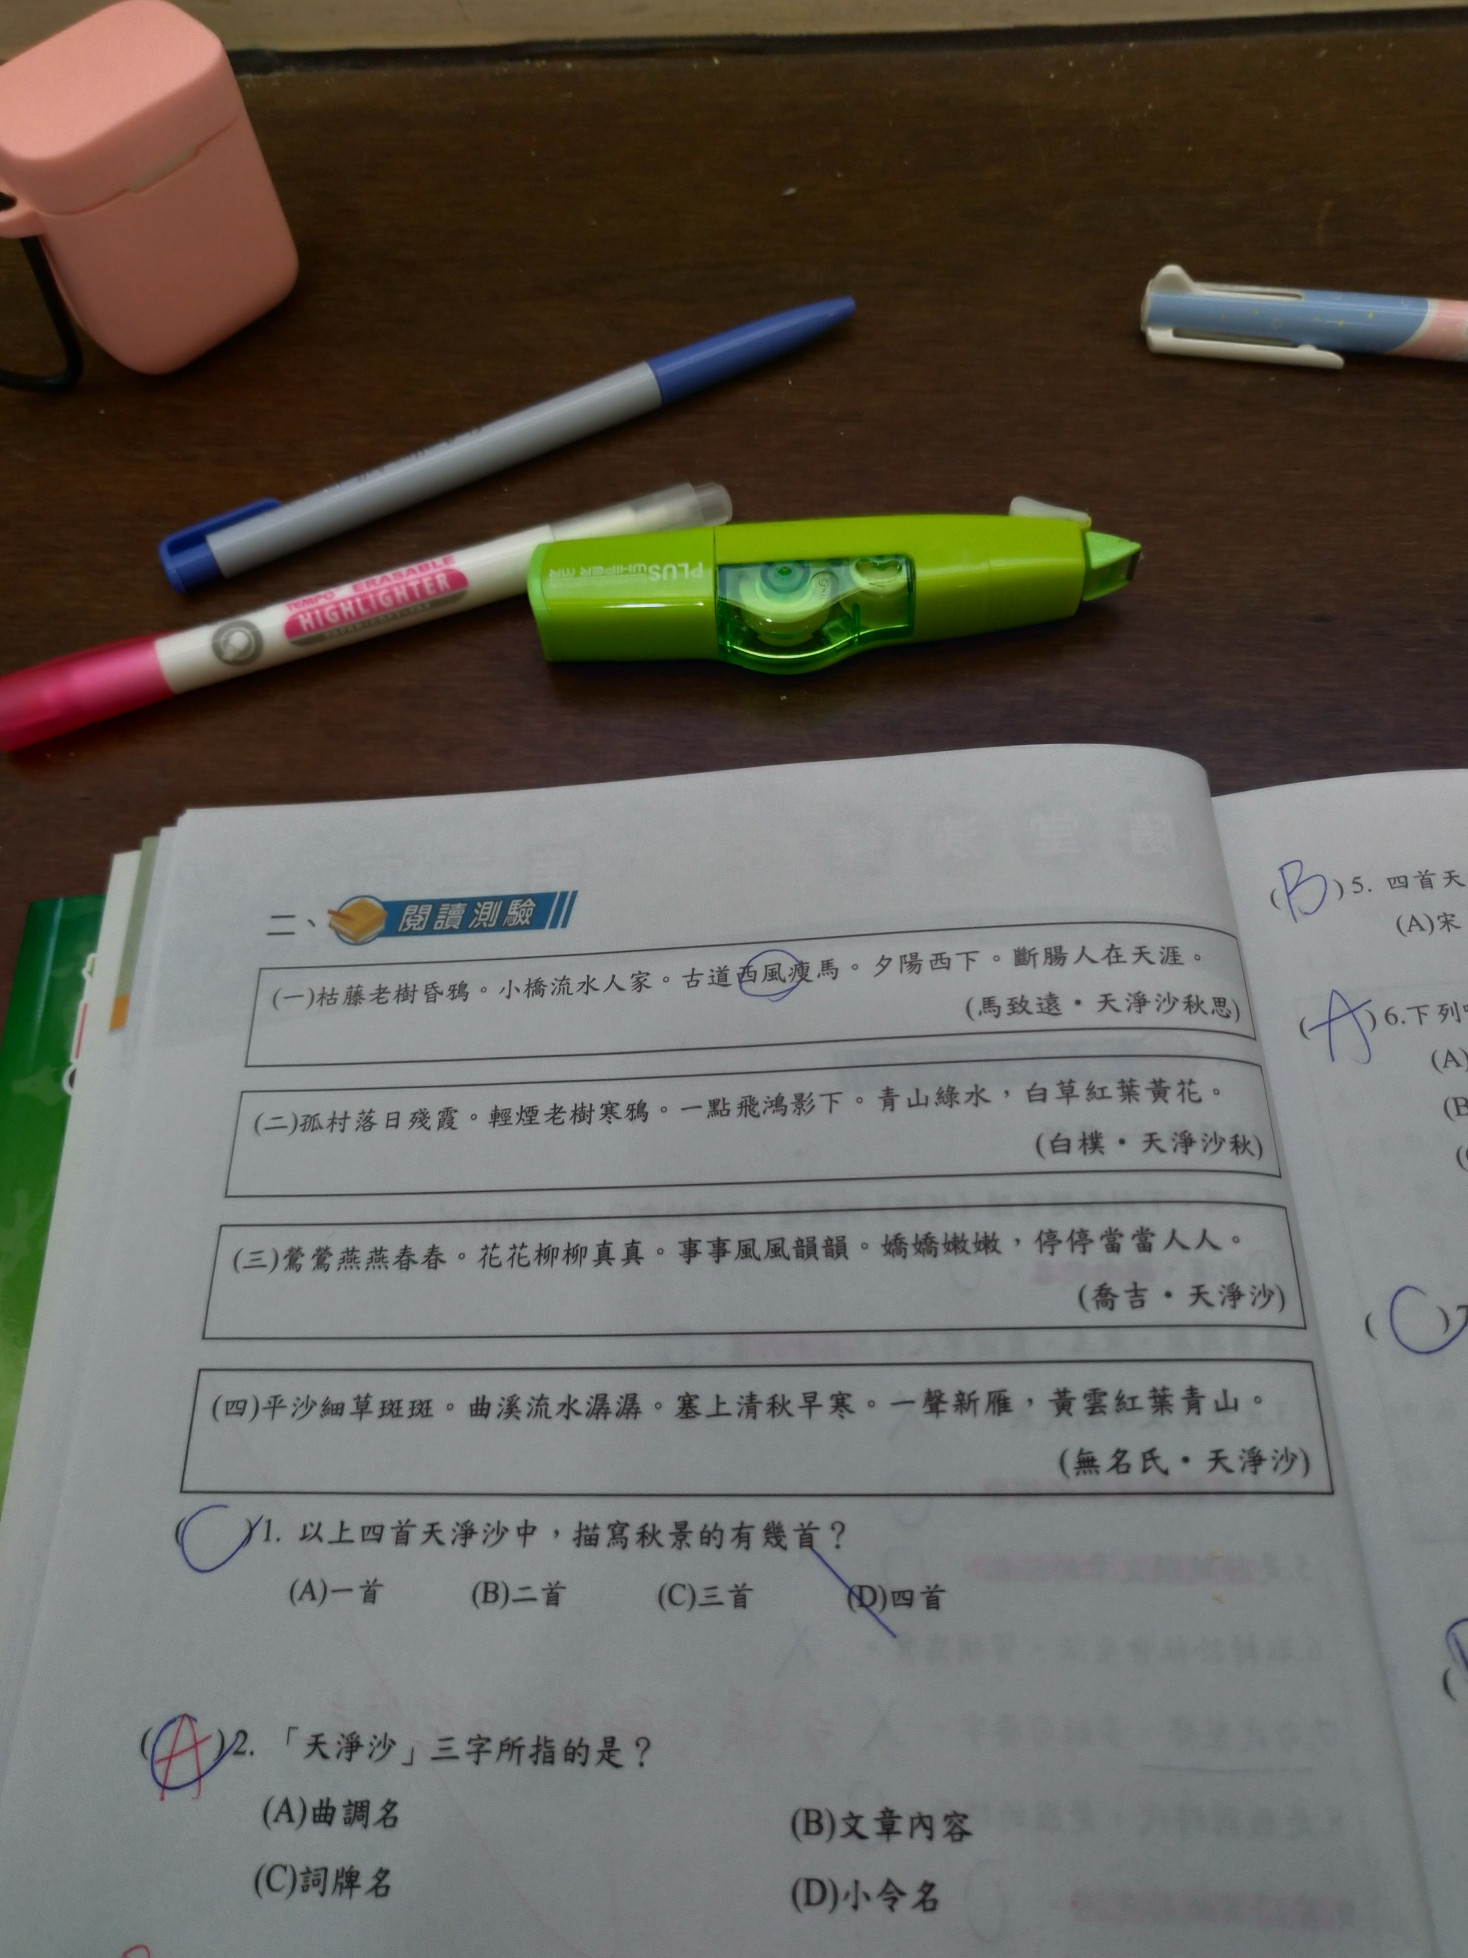 TEMPO ERASABLE
HIGHLIGHTER
PLUS WHIPER MR
二、閱讀測驗
(一)枯藤老樹昏鴉。小橋流水人家。古道西風瘦馬。夕陽西下。斷腸人在天涯。
(馬致遠・天淨沙秋思)
(二)孤村落日殘霞。輕煙老樹寒鴉。一點飛鴻影下。青山綠水，白草紅葉黃花。
(白樸・天淨沙秋)
(三)鶯鶯燕燕春春。花花柳柳真真。事事風風韻韻。嬌嬌嫩嫩，停停當當人人。
(喬吉・天淨沙)
(四)平沙細草斑斑。曲溪流水潺潺。塞上清秋早寒。一聲新雁，黃雲紅葉青山。
(無名氏・天淨沙)
(C)1. 以上四首天淨沙中，描寫秋景的有幾首？
(A)一首 (B)二首 (C)三首 (D)四首
(A)2. 「天淨沙」三字所指的是？
(A)曲調名 (B)文章內容
(C)詞牌名 (D)小令名
(B)5. 四首天
(A)宋
(A)6.下列
(A)
(B
(C)7